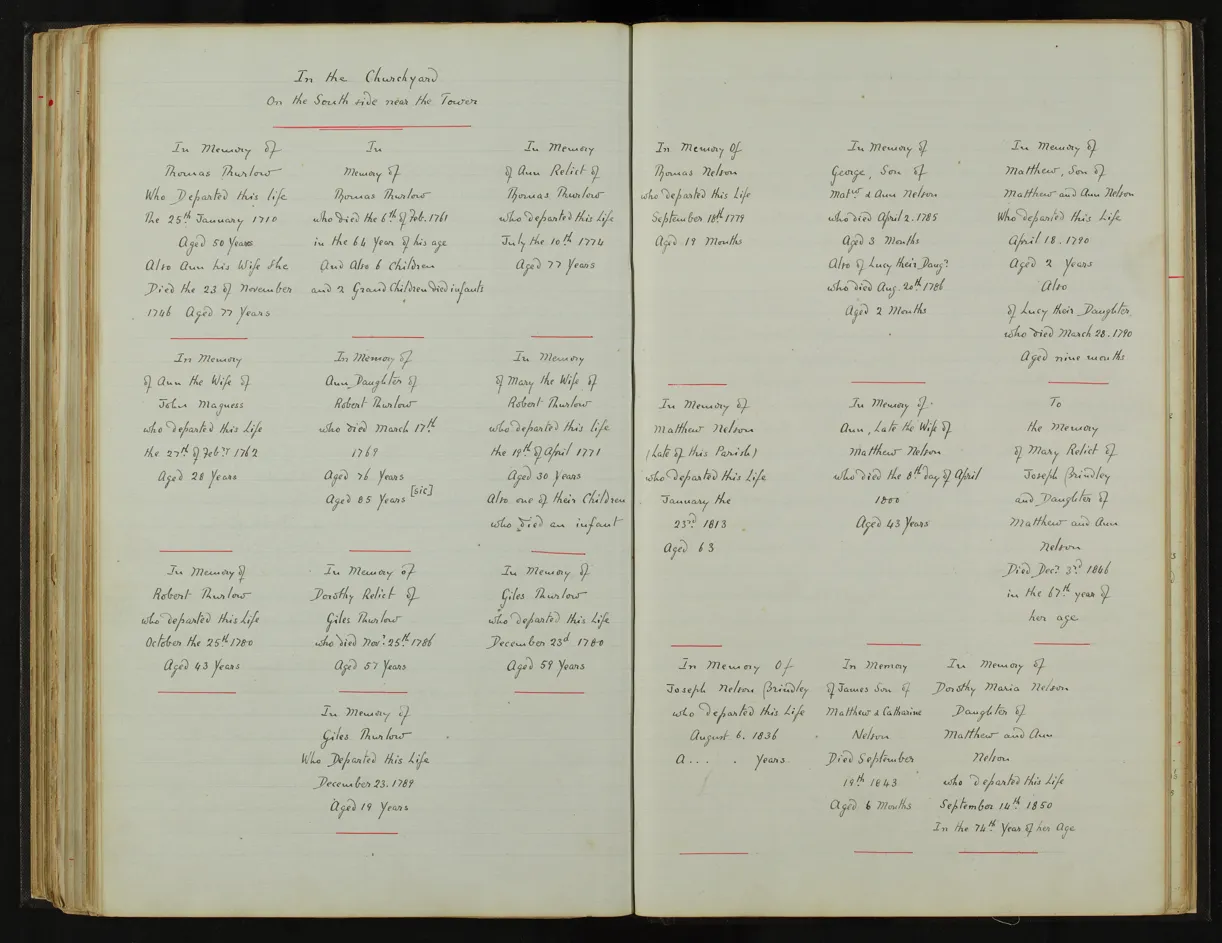 In the Churchyard
On the South side near the Tower
In Memory of
Thomas Thurlow
Who Departed this life
The 25th January 1710
Aged 50 Years
Also Ann his Wife She
Died the 23 of November
1746 Aged 77 Years
In
Memory of
Thomas Thurlow
who died the 6th of Feb. 1761
in the 64 Year of his age
And Also 6 Children
and 2 Grand Children died infants
In Memory
of Ann Relict of
Thomas Thurlow
who departed this Life
July the 10th 1774
Aged 77 Years
In Memory
of Ann the Wife of
John Magness
who departed this Life
the 27th of Febry 1762
Aged 28 Years
In Memory of
Ann Daughter of
Robert Thurlow
who died March 17th
1769
Aged 76 Years
Aged 85 Years [sic]
In Memory
of Mary the Wife of
Robert Thurlow
who departed this life
the 19th of April 1771
Aged 30 Years
Also one of their Children
who died an infant
In Memory of
Robert Thurlow
who departed this Life
October the 25th 1780
Aged 43 Years
In Memory of
Dorothy Relict of
Giles Thurlow
who died Novr 25th 1786
Aged 57 Years
In Memory of
Giles Thurlow
who departed this Life
December 23d 1780
Aged 59 Years
In Memory of
Giles Thurlow
Who Departed this Life
December 23. 1789
Aged 19 Years
In Memory Of
Thomas Nelson
who departed this Life
September 18th 1779
Aged 19 Months
In Memory of
George, Son of
Matw & Ann Nelson
who died April 2. 1785
Aged 3 Months
Also of Lucy their Daugr
who died Aug. 20th 1786
Aged 2 Months
In Memory of
Matthew, Son of
Matthew and Ann Nelson
Who departed this Life
April 18. 1790
Aged 2 Years
Also
of Lucy their Daughter,
who died March 28. 1790
Aged nine months
In Memory of
Matthew Nelson
(Late of this Parish)
who departed this Life
January the
23rd 1813
Aged 63
In Memory of
Ann, Late the Wife of
Matthew Nelson
who died the 8th day of April
1800
Aged 43 Years
To
the Memory
of Mary Relict of
Joseph Brindley
and Daughter of
Matthew and Ann
Nelson
Died Decr 3rd 1846
in the 67th year of
her age
In Memory Of
Joseph Nelson Brindley
who departed this Life
August 6. 1836
A... . Years
In Memory
of James Son of
Matthew & Catharine
Nelson
Died September
19th 1843
Aged 6 Months
In Memory of
Dorothy Maria Nelson
Daughter of
Matthew and Ann
Nelson
who departed this Life
September 14th 1850
In the 74th Year of her Age